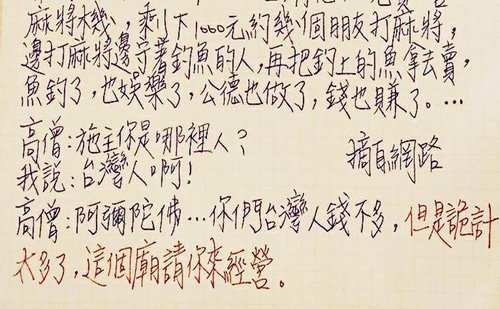 麻將機，剩下1000元約幾個朋友打麻將，
邊打麻將邊守著釣魚的人，再把釣上的魚拿去賣，
魚釣了，也娛樂了，公德也做了，錢也賺了。…
高僧：施主你是哪裡人？
我說：台灣人啊！
摘自網路
高僧：阿彌陀佛…你們台灣人錢不多，但是詭計
太多了，這個廟請你來經營。